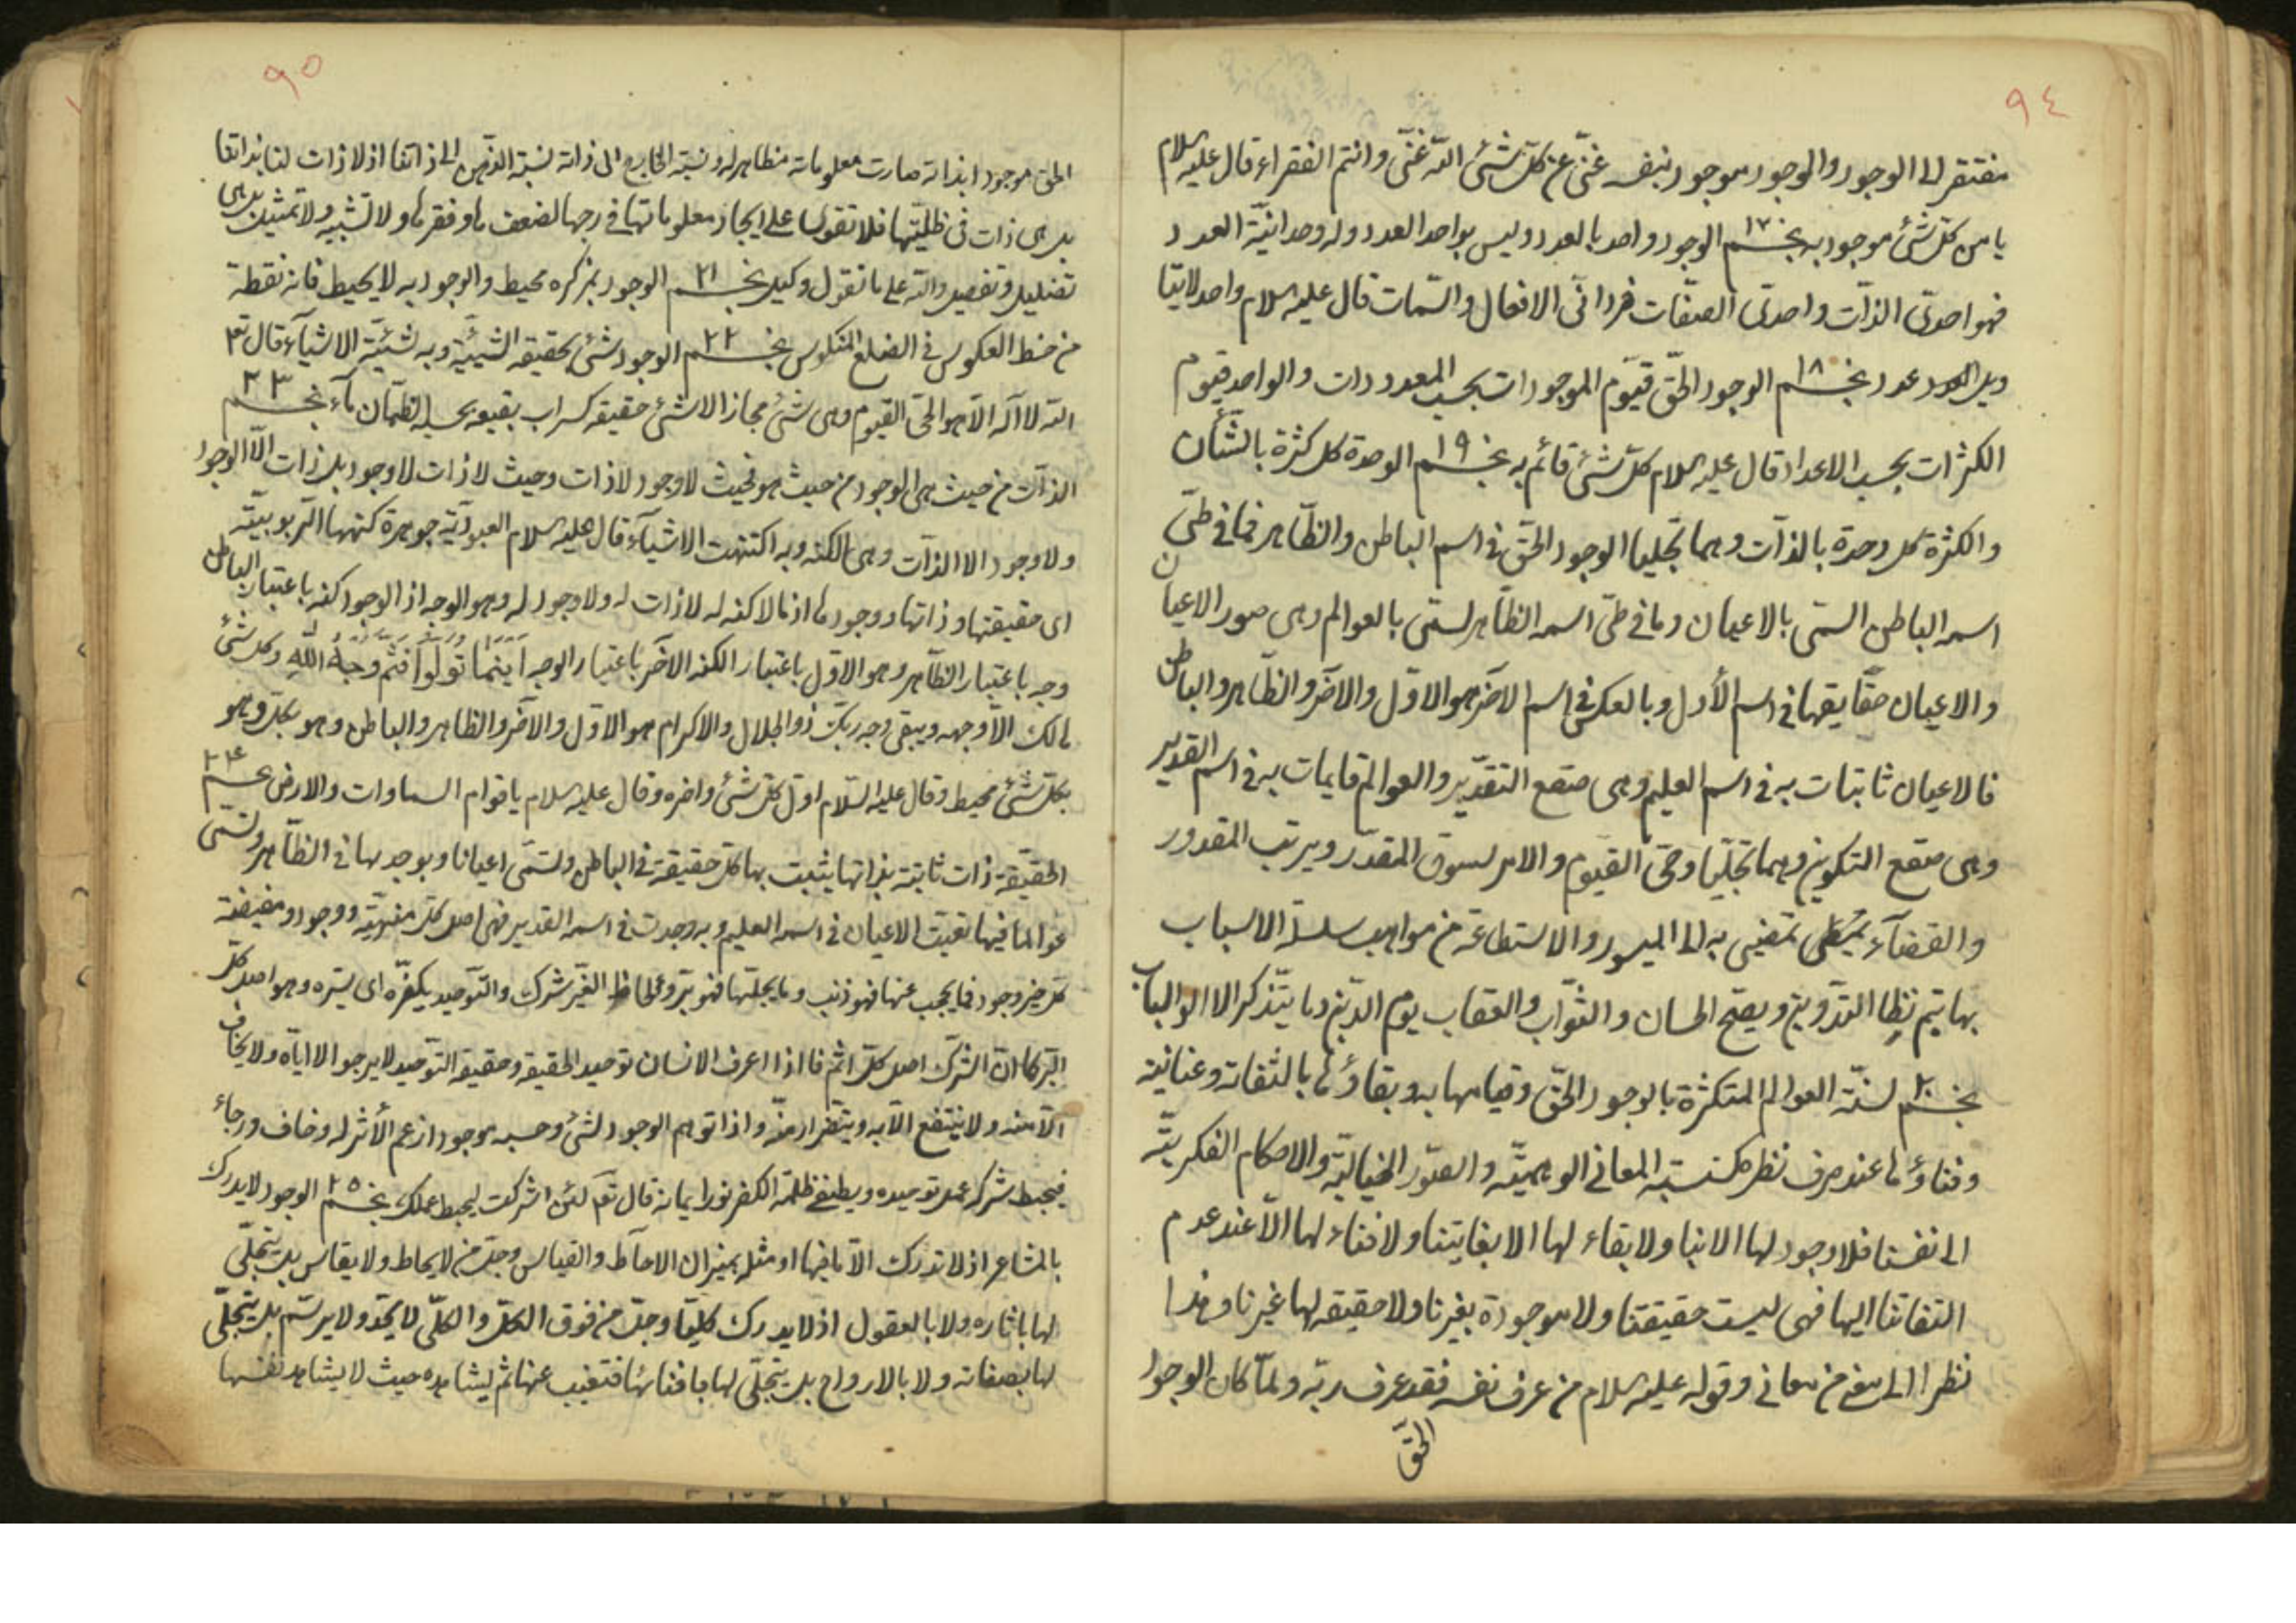 ٩٤
مفتقر الى الوجود والوجود موجود بنفسه غنىّ عن كلّ شئ الله غنىّ وانتم الفقراء قال عليه السلام
يا من كل شئ موجود به نجـــم ١٧ الوجود واحد بالعدد وليس بواحد العدد وله وحدانيّة العدد
فهو احدىّ الذّات واحدىّ الصّفات فردانىّ الافعال والسّمات قال عليه السلام واحد لا
عدد نجـــم ١٨ الوجود الحقّ قيّوم الموجودات بحسب المعدودات والواحد قيوم
الكثرات بحسب الاعداد قال عليه السلام كلّ شئ قائم به نجـــم ١٩ الوحدة كل كثرة بالشّأن
والكثرة كل وحدة بالذّات وهما تجلّيا الوجود الحقّ فى اسم الباطن والظّاهر فما فى طىّ
اسمه الباطن المسمّى بالاعيان وما فى طىّ اسمه الظّاهر لسمّى بالعوالم وهى صور الاعيان
والاعيان حقايقها فى اسم الأول وبالعكس فى اسم الآخر هو الاوّل والآخر والظّاهر والباطن
فالاعيان ثابتات به فى اسم العليم وهى صقع التقدير والعوالم قايمات به فى اسم القدير
وهى صقع التكوين وهما تجلّيا وحىّ القيوم والامر لسوق المقدّر ويرتب المقدور
والقضآء يمضى به الى الميسور والاستطاعة من مواهب سلسلة الاسباب
بها يتم نظا التدوين ويصحّ الحسان والثّواب والعقاب يوم الدّين وما يتذكر الا اولو الباب
نجـــم ٢٠ لسنّة العوالم المتكثرة بالوجود الحقّ وقيامها به وبقاؤها بالتفاته وعنايته
وفناؤها عند صرف نظره كنسبة المعانى الوهميّة والصّور الخياليّة والاحكام الفكريّة
الى نفسنا فلا وجود لها الا بنا ولا بقاء لها الا بعنايتنا ولا فناء لها الّا عند عدم
التفاتنا اليها فهى ليست حقيقتنا ولا موجودة بغيرنا ولا حقيقه لها غيرنا وهذا
نظرا الى معنى من معانى وقوله عليه السلام من عرف نفسه فقد عرف ربّه ولمّا كان الوجود
الحقّ
٩٥
الحق موجودا بذاته صارت معلوماته مظاهر له ونسبة الخارج الى ذاته نسبة الذهن الى ذاتنا اذ لا ذات لنا بذاتنا
بل هى ذات فى ظلّيّتها فلا تقوى لنا على ايجاد معلوماتها فى خارجها لضعفها وفقرها ولا تشبيه ولا تمثيل بل هى
تضليل وتفصيل والله على ما نقول وكيل نجـــم ٢١ الوجود بمركزه محيط والوجود به لا يحيط فانه نقطة
من خط العكوس فى الضلع المنكوس نجـــم ٢٢ الوجود شئ بحقيقه الشّيئيّة وبه شيئيّة الاشيآء قال تع
الله لا اله الّا هو الحىّ القيوم وهى شئ مجازا لا شئ حقيقه كسراب بقيعة يحسبه الظّمآن مآء نجـــم ٢٣
الذّات من حيث هى الوجود من حيث هو فحيث لا وجود لا ذات وحيث لا ذات لا وجود بل ذات الّا الوجود
ولا وجود الا الذّات وهى الكنه وبه اكتنهت الاشيآء قال عليه السلام العبوديّة جوهرة كنهها الرّبوبيّة
اى حقيقتها وذاتها ووجودها اذ ما لا كنه له لا ذات له ولا وجود له وهو الوجه اذ الوجود كنه باعتبار الباطن
وجه باعتبار الظّاهر وهو الاوّل باعتبار الكنه الآخر باعتبار الوجه اَيْنَمَا تُوَلُّوا فَثَمَّ وَجْهُ اللهِ وكل شئ
هالك الّا وجهه ويبقى وجه ربّك ذو الجلال والاكرام هو الاوّل والآخر والظاهر والباطن وهو بكل وهو
بكلّ شئ محيط وقال عليه السّلام اوّل كل شئ واخره وقال عليه السلام يا قوام السماوات والارض نجـــم ٢٤
الحقيقة ذات ثابتة بذاتها يثبت بها كلّ حقيقة فى الباطن ولسمّى اعيانا ويوجد بها فى الظّاهر ولسمّى
عوالما فيها تعيّنت الاعيان فى اسمه العليم وبه وجدت فى اسمه القدير فهى اصل كلّ ووجود ومفيضة
كل خير وجود فما يحجب عنها فهو ذنب وما يجلبها فهو برّ ولحاظ الغير شرك والتّوحيد يكفّره اى يستره وهو اصل كلّ
البرّ كما انّ الشّرك اصل كلّ اثم فاذا اعرف الانسان توحيد الحقيقه وحقيقة التوحيد لا يرجو الا ايّاه ولا يخاف
الّا منه ولا ينتفع الّا به ويتضرّر منه واذا توهم الوجود لشئ وحسبه موجودا زعم الأثر له وخاف ورجاء
فيحبط شركه عمل توحيده ويطفئ ظلمة الكفر نور ايمانه قال تع لئن اشركت ليحبط عملك نجـــم ٢٥ الوجود لا يدرك
بالمشاعر اذ لا تدرك الّا ما فيها او مثله بميزان الاحاط والقياس وجلّ من لا يحاط ولا يقاس بل يتجلّى
لها باثاره ولا بالعقول اذ لا يدرك كليّا وجلّ من فوق الكلّ والكلّى لا يحدّ ولا يرسّم بل يتجلّى
لها بصفاته ولا بالارواح بل يتجلّى لها بافنائها فتغيب عنها ثم يشاهده حيث لا يشاهد نفسها